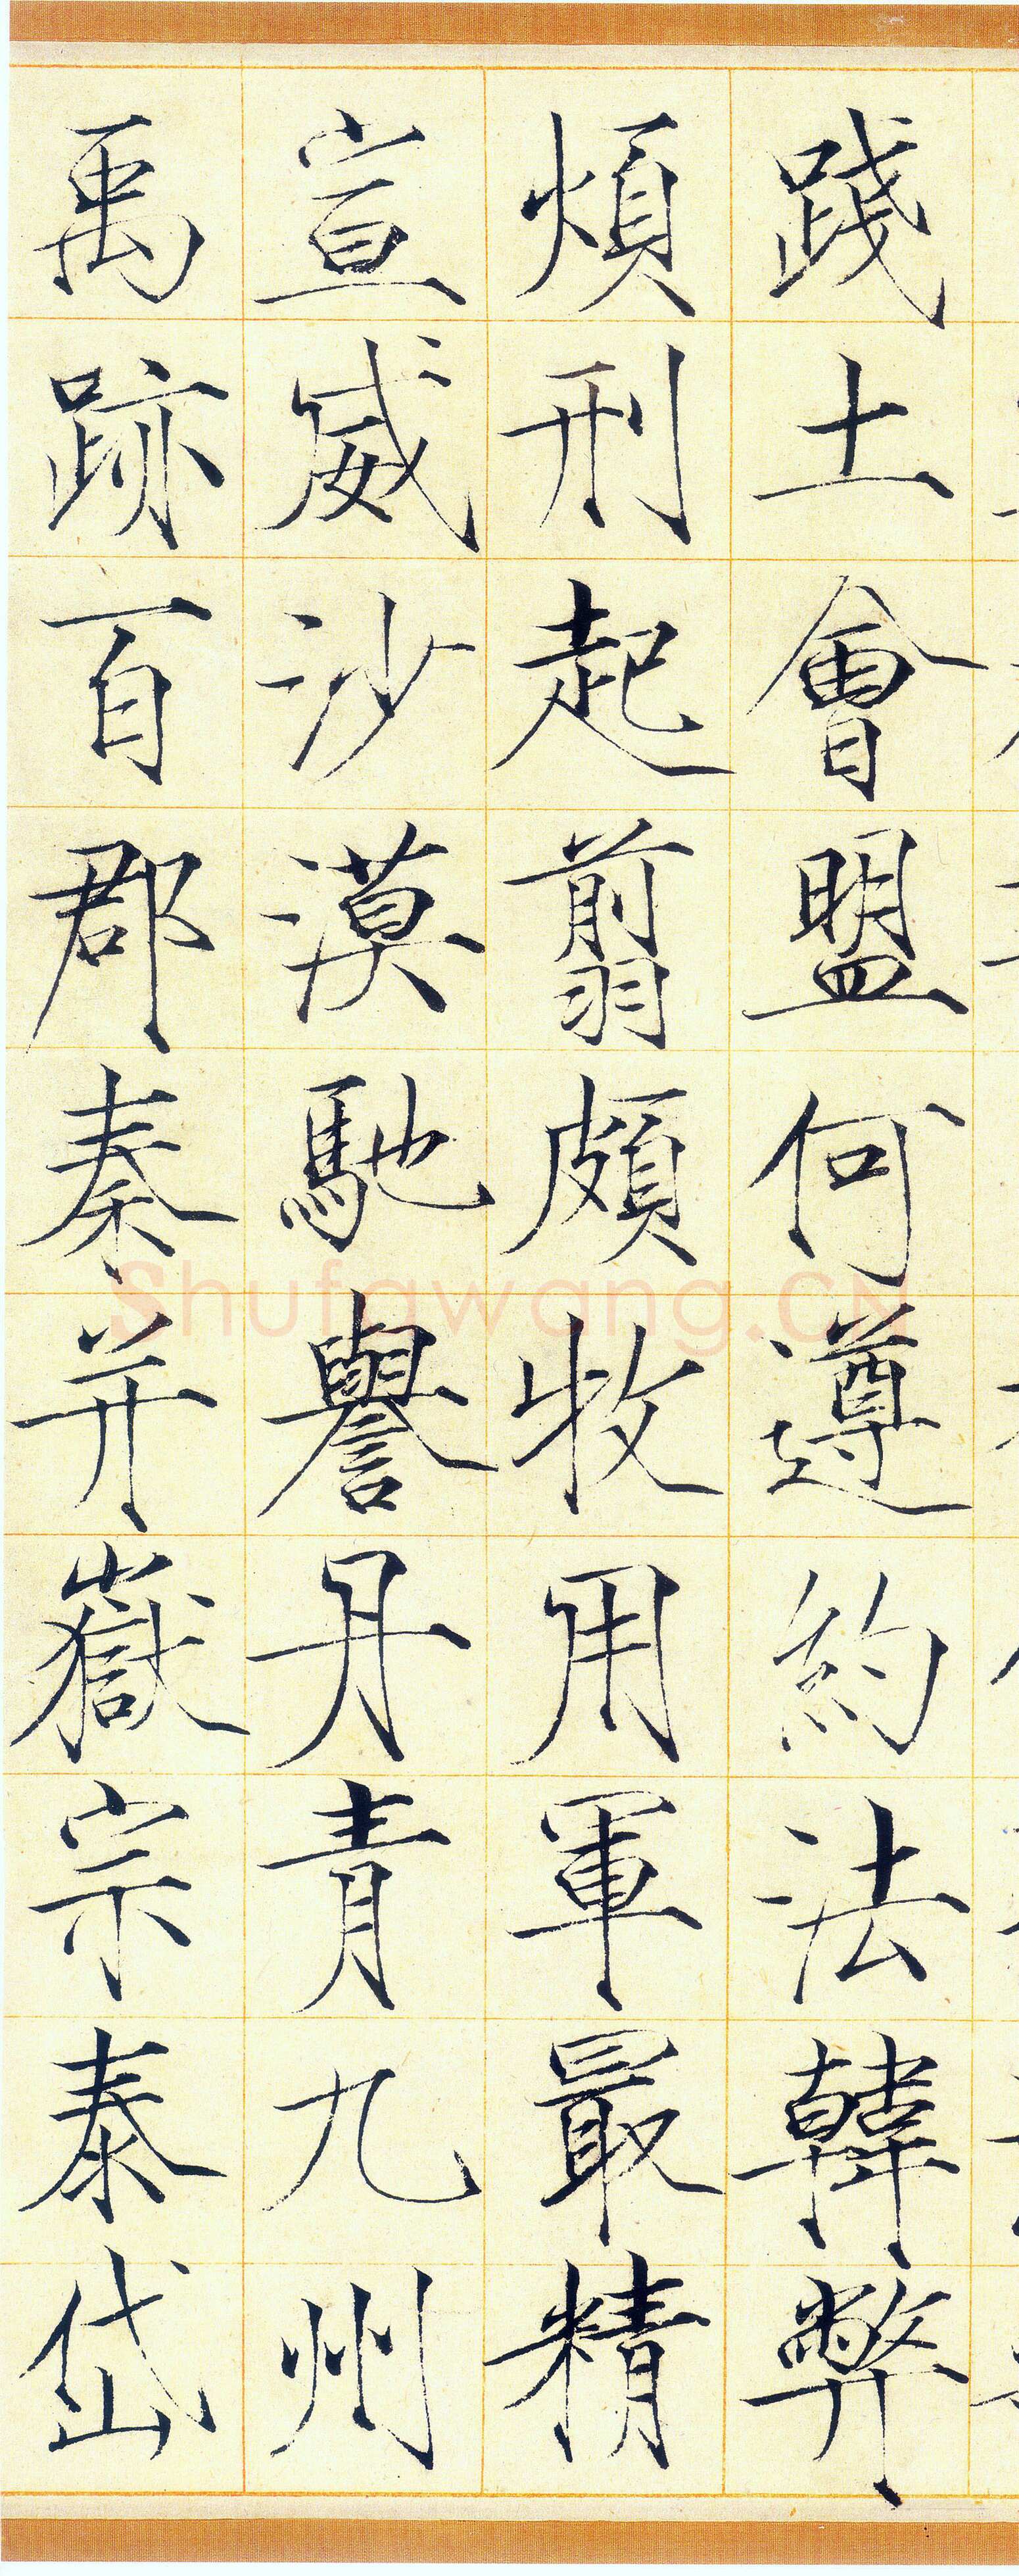 踐土會盟何遵約法韓弊
煩刑起翦頗牧用軍最精
宣威沙漠馳譽丹青九州
禹跡百郡秦并嶽宗泰岱
Shufawang.CN